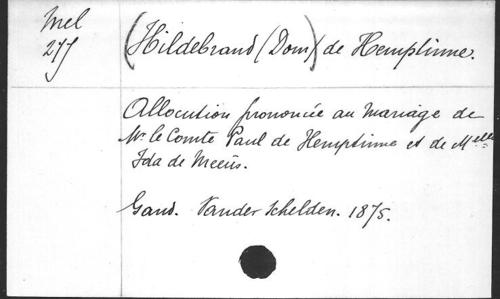 Mel
277
(Hildebrand (Dom)) de Hemptinne.
Allocution prononcée au mariage de
Mr le Comte Paul de Hemptinne et de Melle
Ida de Meeûs.
Gand. Vander Schelden. 1875.